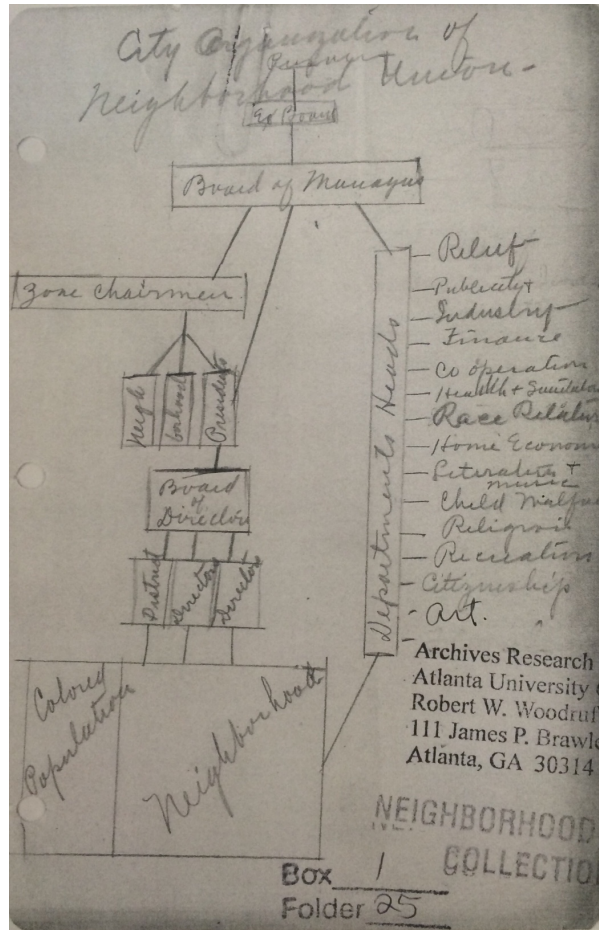 City Organization of
Neighborhood Union-
Ex Board
Board of Managers
Zone Chairmen
Neigh
borhood
Presidents
Board
of
Directors
District
Directors
Directors
Colored
Population
Neighborhood
Departments Heads
Relief
Publicity +
Industry
Finance
Cooperation
Health + Sanitation
Race Relation
Home Econom
Literature +
music
Child Welfare
Religion
Recreation
Citizenship
Art.
Archives Research
Atlanta University
Robert W. Woodruf
111 James P. Brawle
Atlanta, GA 30314
NEIGHBORHOOD
COLLECTIO
Box 1
Folder 25